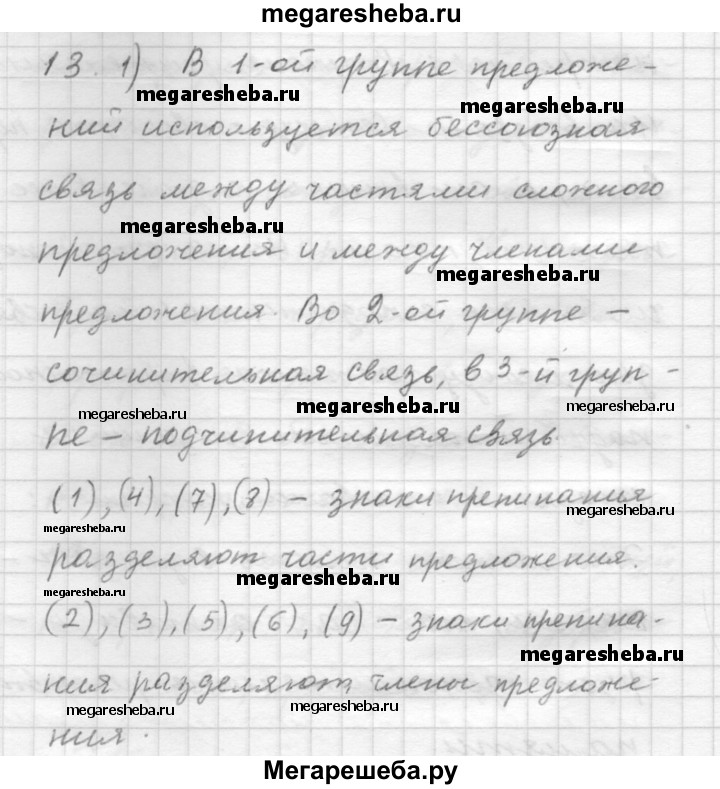 megaresheba.ru
13. 1) В 1-ой группе предложе-
megaresheba.ru
megaresheba.ru
ний используется бессоюзная
связь между частями сложного
megaresheba.ru
предложения и между членами
megaresheba.ru
предложения. Во 2-ой группе –
сочинительная связь, в 3-й груп-
megaresheba.ru
megaresheba.ru
megaresheba.ru
пе – подчинительная связь.
(1), (4), (7), (8) – знаки препинания
megaresheba.ru
megaresheba.ru
разделяют части предложения.
megaresheba.ru
(2), (3), (5), (6), (9) – знаки препина-
megaresheba.ru
ния разделяют члены предложе-
megaresheba.ru
megaresheba.ru
ния.
Мегарешеба.ру